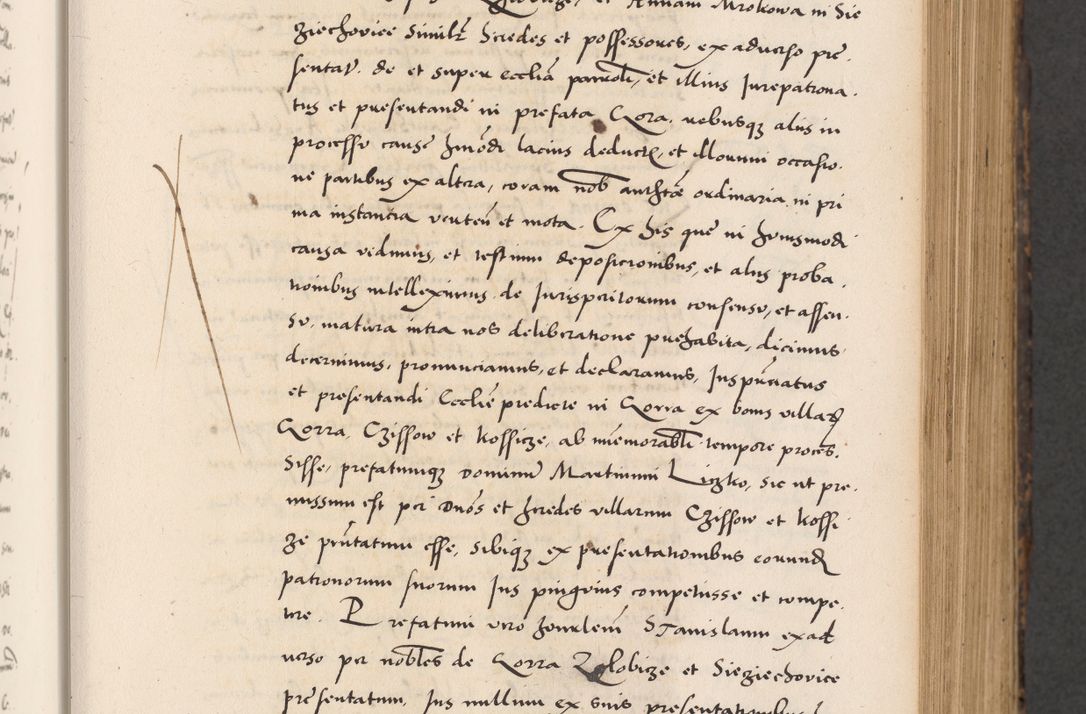 et Annam Mrokowa in Sie
ziechoviee similr heredes et possessores, ex adverso pre
sentat. de et super eccliã parrochli, et illius Jurepatrona
tus et presentandi in prefata Gora, rebusqz aliis in
processu cause hmõdi lacius deductis, et illorum occasio
ne partibus ex altera, coram nob authtãe ordinaria in pri
ma instancia verteñ et mota. Ex his que in huiusmodi
causa vidimus, et testium deposicionibus, et aliis proba
tionibus intelleximus, de Jurisperitorum consensu, et assen
su, matura intra nos deliberatione prehabita, dicimus
decernimus, pronunciamus, et declaramus, Juspñtatus
et presentandi Ecclie predicte in Gorra ex bonis villarz
Gorra, Czissow et kossicze, ab immemorabli tempore proces
sisse, prefatumqz dominum Martinum Liczko, sic ut pre
missum est per dnos et heredes villarum Czissow et kossi
ze prñtatum esse, sibiqz ex presentationibus eorund
patronorum suorum Jus pinguius competiisse et compe
tere. Prefatum vero honrlem Stanislaum ex ad
verso per nobles de Gorra Zelobicze et Sieziechovice
presentatum, Jus nullum ex suis presentationibus